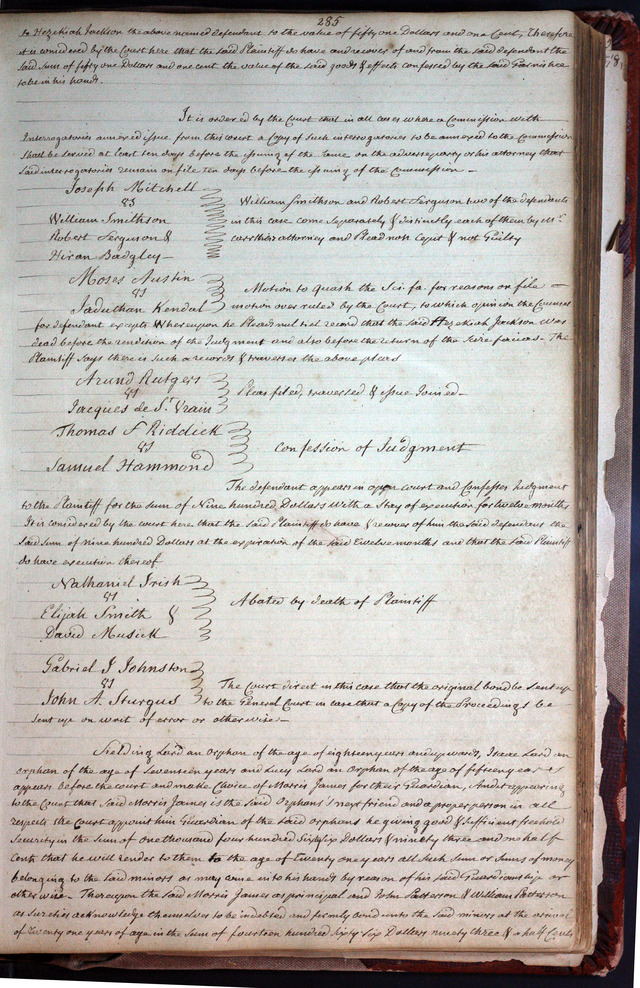 285
to Hezekiah Jackson the above named defendant to the value of fifty one Dollars and one Cent, Therefore
it is considered by the Court here that the said Plaintiff do have and recover of and from the said defendant the
said Sum of fifty one Dollars and one cent the value of the said goods & effects confessed by the said Garnishee
to be in his hands.
It is ordered by the Court that in all cases where a Commission with
Interrogatories annexed issue from this court a Copy of Such interrogatories to be annexed to the Commission
shall be served at least ten days before the issuing of the same on the adverse party or his attorney that
said interrogatories remain on file ten days before the issuing of the Commission —
Joseph Mitchell
vs
William Smithson
Robert Ferguson &
Hiran Badgley —
William Smithson and Robert Ferguson two of the defendants
in this case come Separately & distinctly each of them by Mr.
his attorney and Plead non Cepit & not Guilty
Moses Austin
vs
Jaduthan Kendal
Motion to quash the Sci. fa. for reasons on file —
motion over ruled by the Court, to which opinion the Counsel
for defendant excepts Whereupon he Pleads nul tiel record that the said Hezekiah Jackson was
dead before the rendition of the Judgment and also before the return of the Scire facias. The
Plaintiff Says there is Such a records & traverses the above pleas
Arund Rutgers
vs
Jacques de St. Vrain
Pleas filed, traversed & issue Joined —
Thomas F Riddick
vs
Samuel Hammond
Confession of Judgment
The defendant appears in open court and Confesses Judgment
to the Plaintiff for the sum of Nine hundred Dollars With a Stay of execution for twelve months
It is considered by the court here that the said Plaintiff do have & recover of him the said defendant the
said Sum of nine hundred Dollars at the expiration of the said Twelve months and that the said Plaintiff
do have execution thereof
Nathaniel Irish
vs
Elijah Smith &
David Musick
Abated by death of Plaintiff
Gabriel J Johnston
vs
John A. Sturgus
The Court direct in this case that the original bond be sent up
to the General Court in case that a Copy of the Proceedings be
sent up on writ of error or otherwise —
Fielding Lard an orphan of the age of eighteen years and upwards, Isaac Lard an
orphan of the age of Seventeen years and Lucy Lard an Orphan of the age of fifteen years
appears before the court and make Choice of Morris James for their Guardian, And it appearing
to the Court that Said Morris James is the Said Orphans' next friend and a proper person in all
respects the Court appoint him Guardian of the said orphans he giving good & Sufficient freehold
Security in the Sum of one thousand four hundred Sixty six Dollars & ninety three and no half
Cents that he will render to them to the age of twenty one years all Such Sum or Sums of money
belonging to the Said minors as may come into his hands by reason of his said Guardianship or
other wise — Thereupon the said Morris James as principal and John Patterson & William Patterson
as Surities acknowledge themselves to be indebted and firmly bound unto the said minors at the arrival
of Twenty one years of age in the Sum of fourteen hundred Sixty Six Dollars ninety three & a half Cents